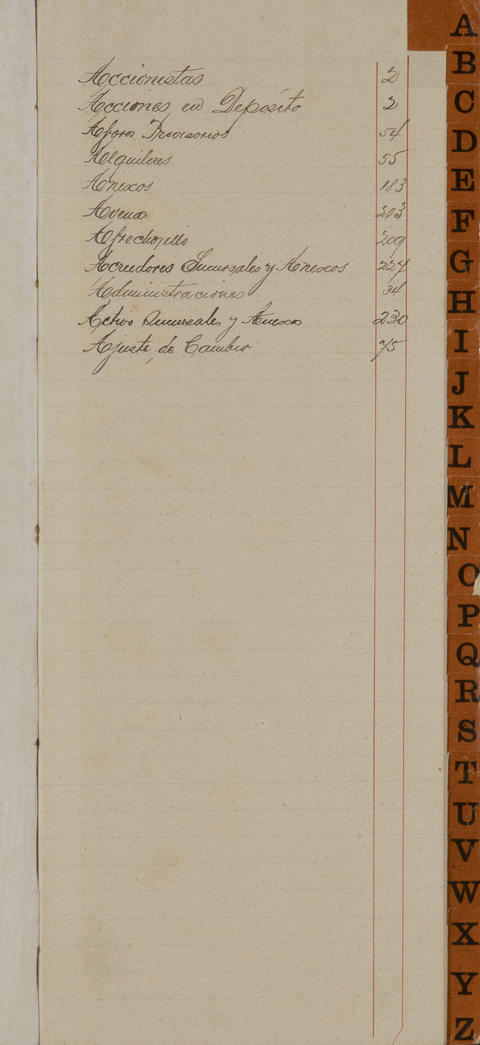 Accionistas 2
Acciones en Depósito 2
Aforos Provisorios 54
Alquileres 55
Anexos 183
Avena 203
Afrechillo 209
Acreedores Sucursales y Anexos 227
Administraciones 34
Activo Sucursales y Anexos 230
Ajuste de Cambio 75
A
B
C
D
E
F
G
H
I
J
K
L
M
N
O
P
Q
R
S
T
U
V
W
X
Y
Z